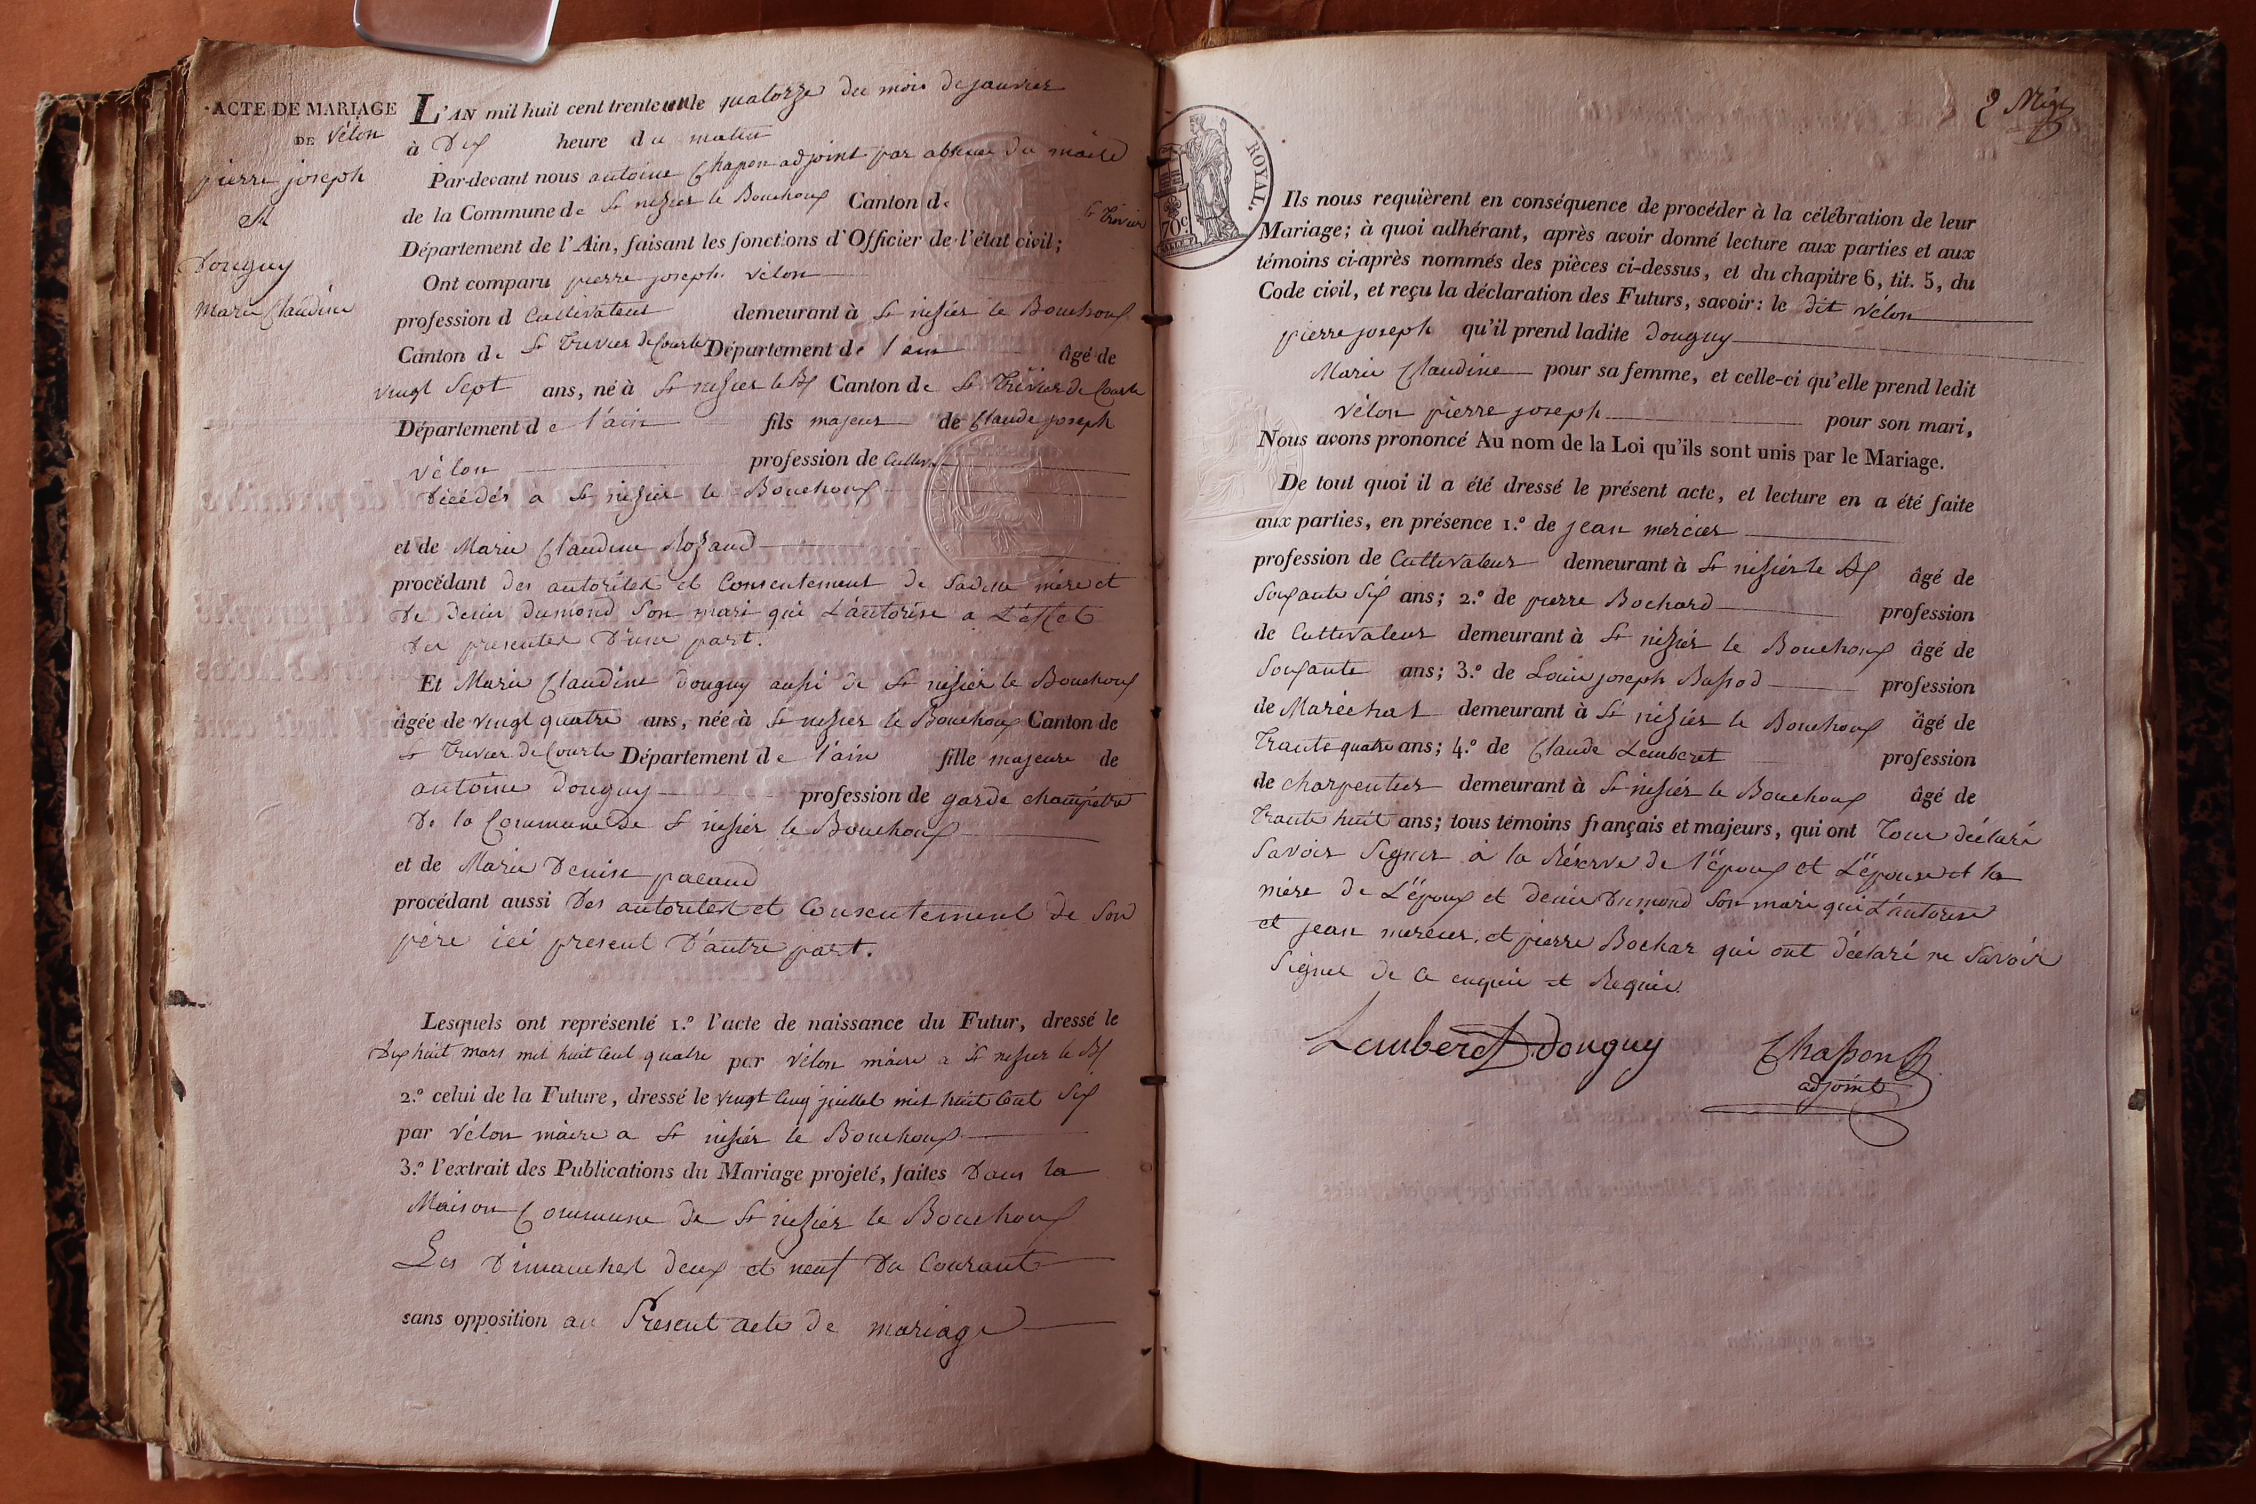 ACTE DE MARIAGE
DE Vélon
pierre joseph
et
Douguy
Marie Claudine
L'AN mil huit cent trente un le quatorze du mois de janvier
à Dix heure du matin
Par-devant nous antoine Chapon adjoint par absence du maire
de la Commune de St nizier le Bouchoux Canton de St Trivier
Département de l'Ain, faisant les fonctions d'Officier de l'état civil;
Ont comparu pierre joseph vélon
profession d Cultivateur demeurant à St nizier le Bouchoux
Canton de St Trivier de Courte Département de l'ain âgé de
vingt Sept ans, né à St nizier le Bx Canton de St Trivier de Courte
Département de l'ain fils majeur de Claude joseph
vélon profession de Cultiv
Décédés à St nizier le Bouchoux
et de Marie Claudine Rozand
procédant des autorités et Consentement de Sadite mère et
De denis dumond Son mari qui L'autorise a L'effet
des presentes D'une part.
Et Marie Claudine douguy aussi de St nizier le Bouchoux
âgée de vingt quatre ans, née à St nizier le Bouchoux Canton de
St Trivier de Courte Département de l'ain fille majeure de
antoine douguy profession de garde champêtre
De la Commune De St nizier le Bouchoux
et de Marie Denise pacaud
procédant aussi Des autorités et Consentement de Son
père ici present D'autre part.
Lesquels ont représenté 1.º l'acte de naissance du Futur, dressé le
Dix huit mars mil huit Cent quatre par vélon maire a St nizier le Bx
2.º celui de la Future, dressé le vingt Cinq juillet mil huit Cent Six
par vélon maire a St nizier le Bouchoux
3.º l'extrait des Publications du Mariage projeté, faites Dans la
Maison Commune de St nizier le Bouchoux
Les Dimanches deux et neuf Du Courant
sans opposition au Present acte de mariage
2 Mge
ROYAL.
70c
Ils nous requièrent en conséquence de procéder à la célébration de leur
Mariage; à quoi adhérant, après avoir donné lecture aux parties et aux
témoins ci-après nommés des pièces ci-dessus, et du chapitre 6, tit. 5, du
Code civil, et reçu la déclaration des Futurs, savoir: le dit vélon
pierre joseph qu'il prend ladite douguy
Marie Claudine pour sa femme, et celle-ci qu'elle prend ledit
vélon pierre joseph pour son mari,
Nous avons prononcé Au nom de la Loi qu'ils sont unis par le Mariage.
De tout quoi il a été dressé le présent acte, et lecture en a été faite
aux parties, en présence 1.º de jean mercier
profession de Cultivateur demeurant à St nizier le Bx âgé de
Soixante Six ans; 2.º de pierre Bochard profession
de Cultivateur demeurant à St nizier le Bouchoux âgé de
Soixante ans; 3.º de Louis joseph Bassod profession
de Maréchal demeurant à St nizier le Bouchoux âgé de
Trante quatre ans; 4.º de Claude Lemberet profession
de charpentier demeurant à St nizier le Bouchoux âgé de
Trante huit ans; tous témoins français et majeurs, qui ont Tous déclaré
Savoir Signer à la Réserve de l'époux et L'épouse et la
mère de L'époux et denis Dumond Son mari qui L'autorise
et jean mercier, et pierre Bochar qui ont déclaré ne Savoir
Signer de ce enquis et Requis.
Lemberet Douguy Chapon
adjoint